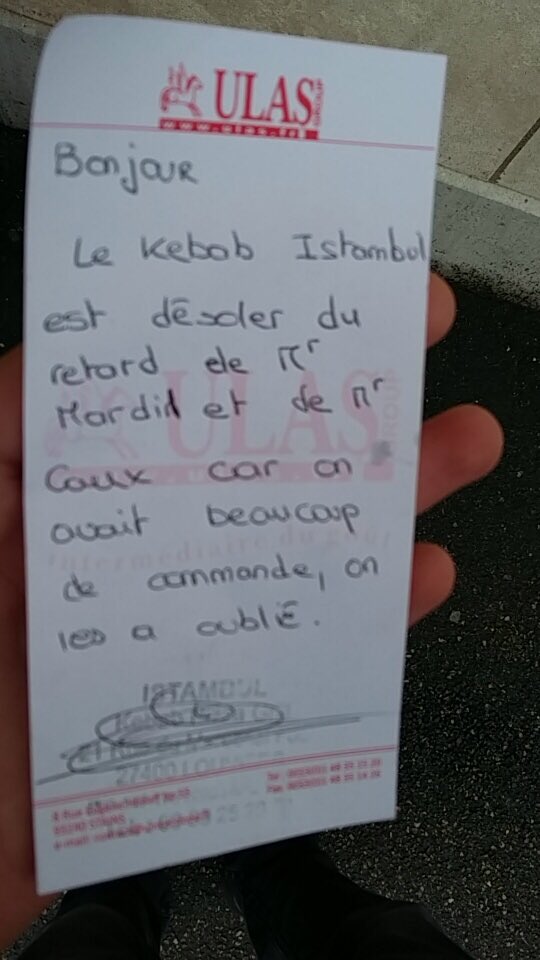 ULAS
GROUP
www.ulas.fr
Bonjour
Le Kebab Istambul
est désoler du
retard de Mr
Mardin et de Mr
Caux car on
avait beaucoup
de commande, on
les a oublié.
ULAS
GROUP
intermédiaire du goût
ISTAMBUL
27400
93240 STAINS
e-mail: